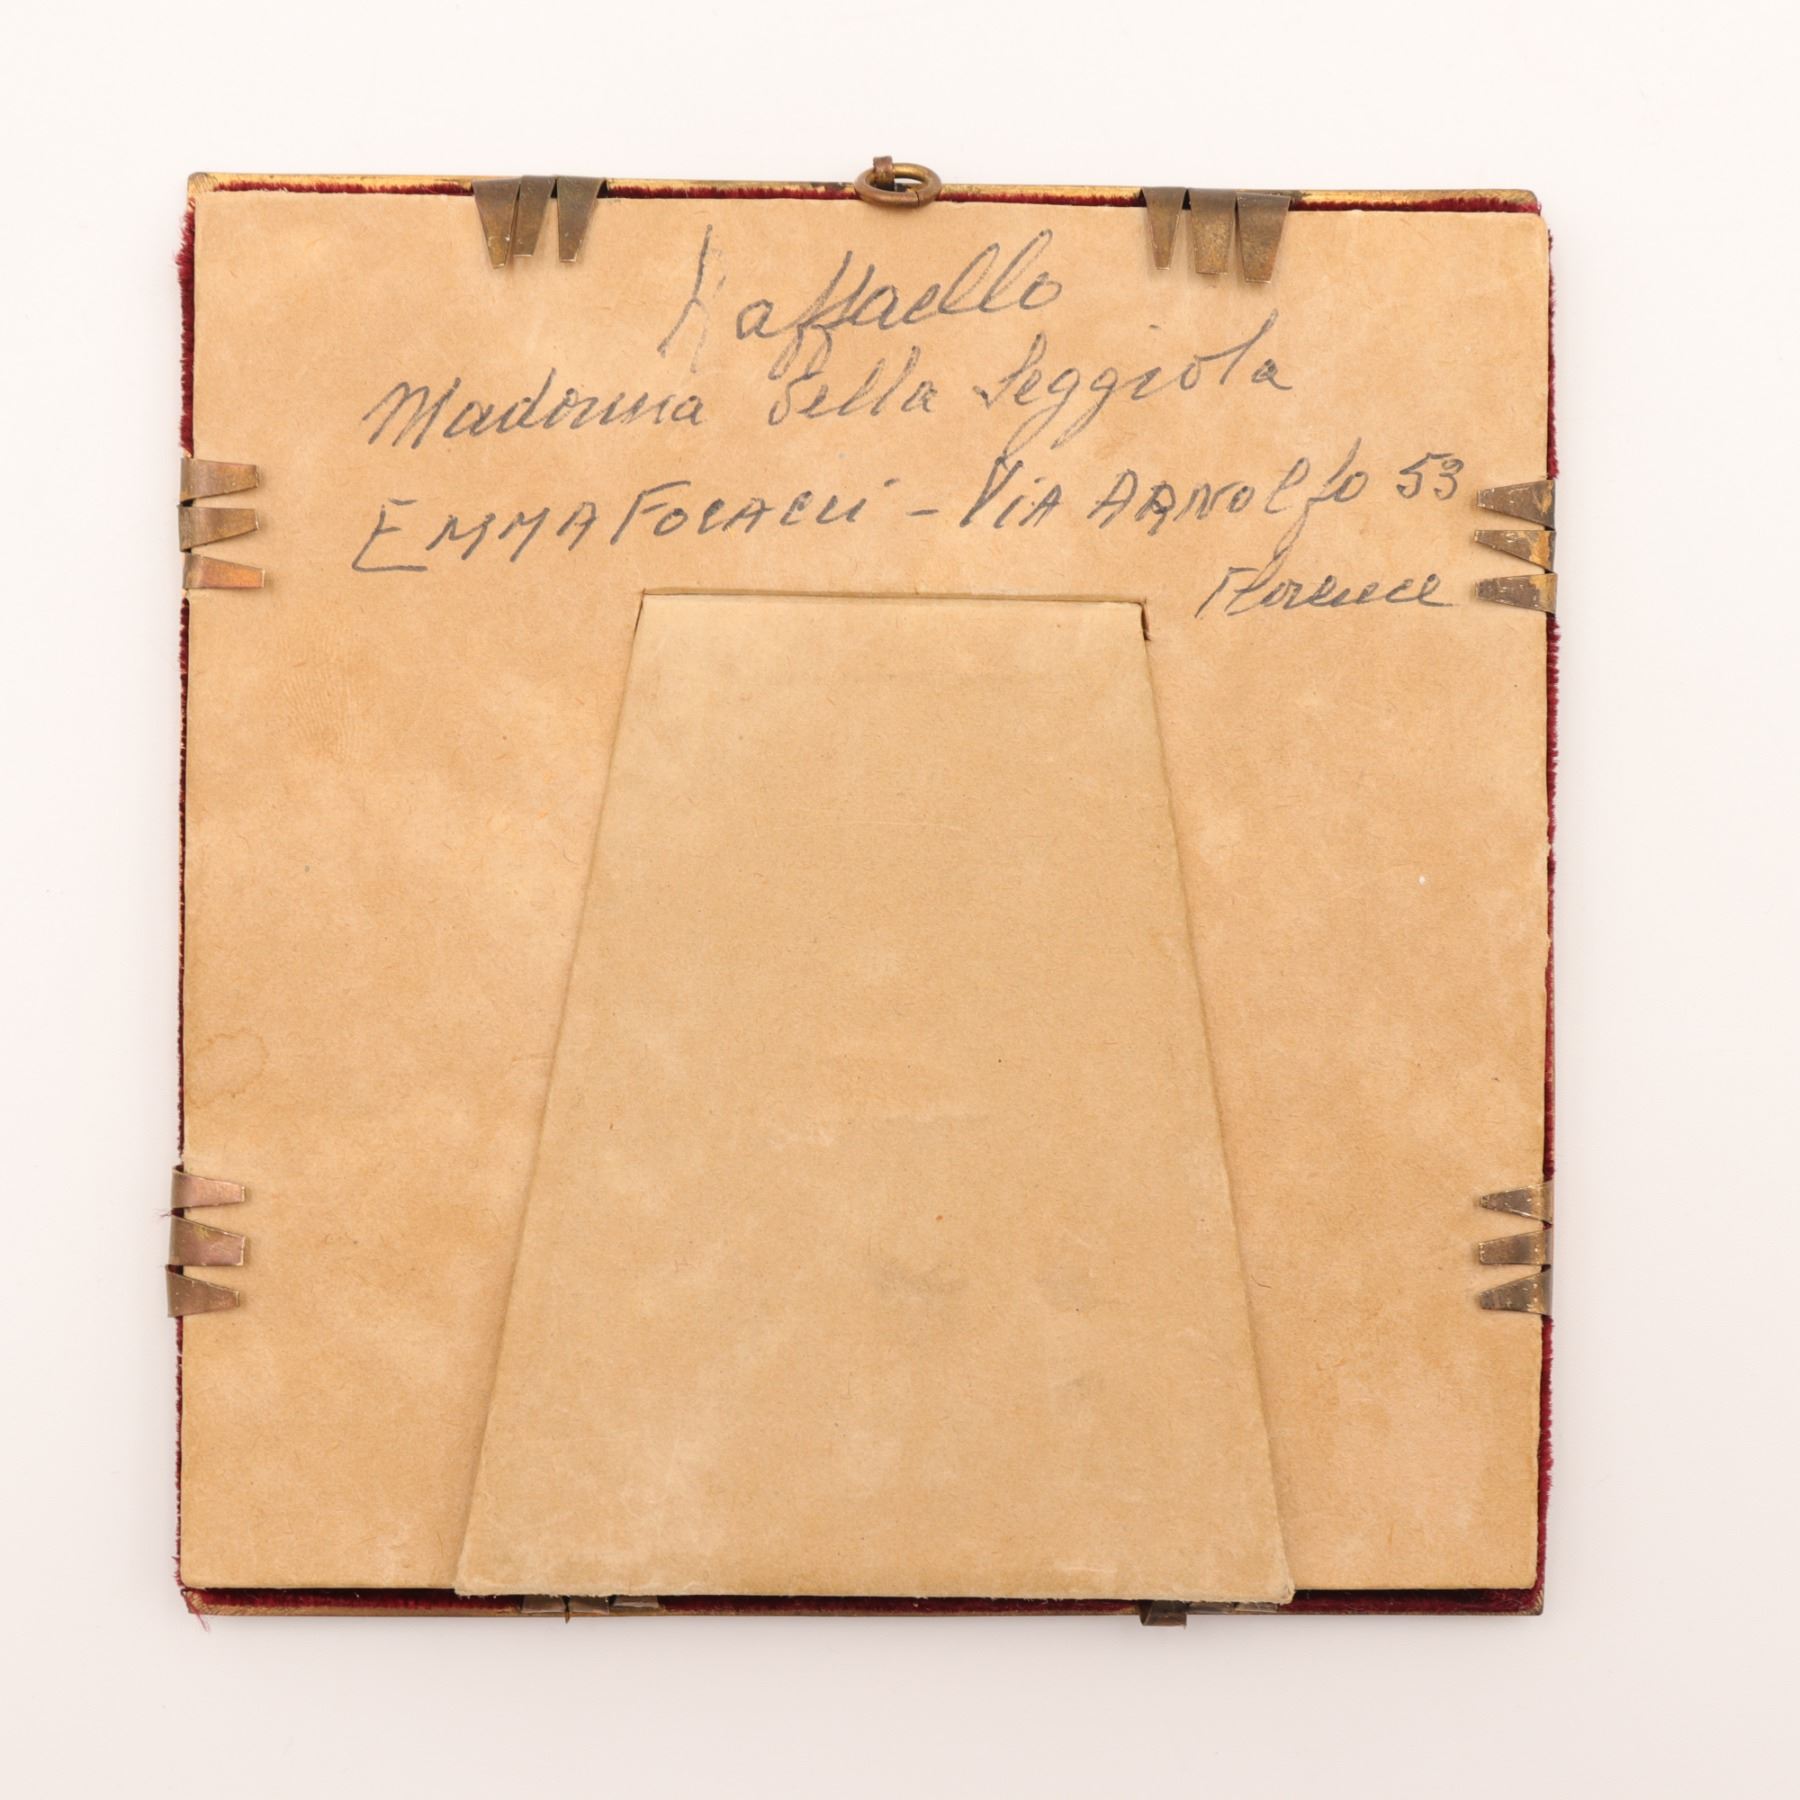 Raffaello
Madonna della Seggiola
EMMA FOCACCI - VIA ARNOLFO 53
Florence